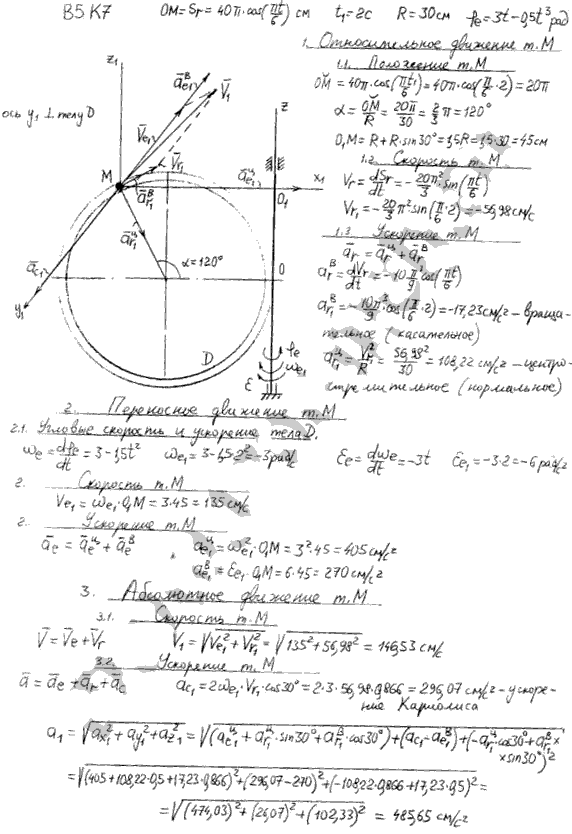 В5 К7 OM = Sr = 40π·cos(πt/6) см t₁ = 2с R = 30см φe = 3t − 0,5t³ рад
1. Относительное движение т.М
1.1. Положение т.М
OM = 40π·cos(πt₁/6) = 40π·cos(π/6·2) = 20π
α = OM/R = 20π/30 = 2/3 π = 120°
O₁M = R + R·sin30° = 1,5R = 1,5·30 = 45см
1.2. Скорость т.М
Vr = dSr/dt = −20π²/3·sin(πt/6)
Vr₁ = −20/3 π² sin(π/6·2) = −56,98см/с
1.3. Ускорение т.М
ār = ārᶜ + ārᴮ
arᴮ = dVr/dt = −10π³/9 cos(πt/6)
ar₁ᴮ = −10π³/9·cos(π/6·2) = −17,23см/с² – враща-
тельное (касательное)
ar₁ᶜ = Vr₁²/R = 56,98²/30 = 108,22 см/с² – центро-
стремительное (нормальное)
ось y₁ ⊥ телу D
z₁
āe₁ᴮ
V̄₁
V̄e₁
V̄r₁
z
M
ār₁ᴮ
āe₁ᶜ
x₁
O₁
ār₁ᶜ
āc₁
α = 120°
O
y₁
D
φe
ωe₁
ε
2. Переносное движение т.М
2.1. Угловые скорость и ускорение тела D.
ωe = dφe/dt = 3 − 1,5t² ωe₁ = 3 − 1,5·2² = −3 рад/с εe = dωe/dt = −3t εe₁ = −3·2 = −6 рад/с²
2. Скорость т.М
Ve₁ = ωe₁·O₁M = 3·45 = 135 см/с
2. Ускорение т.М
āe = āeᶜ + āeᴮ ae₁ᶜ = ωe₁²·O₁M = 3²·45 = 405 см/с²
ae₁ᴮ = εe₁·O₁M = 6·45 = 270 см/с²
3. Абсолютное движение т.М
3.1. Скорость т.М
V̄ = V̄e + V̄r V₁ = √(Ve₁² + Vr₁²) = √(135² + 56,98²) = 146,53 см/с
3.2. Ускорение т.М
ā = āe + ār + āc ac₁ = 2ωe₁·Vr₁·cos30° = 2·3·56,98·0,866 = 296,07 см/с² – ускоре-
ние Кариолиса
a₁ = √(ax₁² + ay₁² + az₁²) = √((ae₁ᶜ + ar₁ᶜ·sin30° + ar₁ᴮ·cos30°)² + (ac₁ − ae₁ᴮ)² + (−ar₁ᶜ·cos30° + ar₁ᴮ×
×sin30°)²
= √((405 + 108,22·0,5 + 17,23·0,866)² + (296,07 − 270)² + (−108,22·0,866 + 17,23·0,5)²) =
= √((474,03)² + (26,07)² + (102,33)²) = 485,65 см/с²